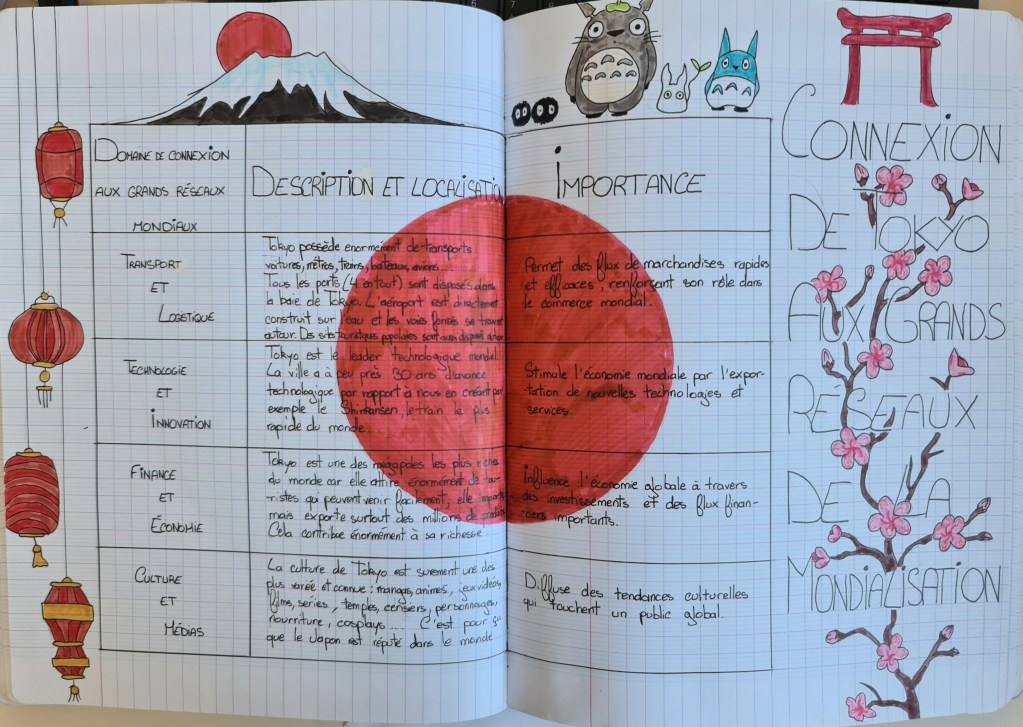 Domaine de connexion
aux grands réseaux
mondiaux
Description et localisation
Importance
Transport
et
Logetique
Tokyo possède enormément de transports
voitures, métres, trains, bateaux, avions...
Tous les ports (4 en tout) sont disposés dans
la baie de Tokyo. L'aéroport est directement
construit sur l'eau et les voies ferrés se trouvent
autour. Des sites touristiques populaires sont aussi disposé autour
Permet des flux de marchandises rapides
et efficaces, renforçant son rôle dans
le commerce mondial.
Technologie
et
Innovation
Tokyo est le leader technologique mondial.
La ville a à peu près 30 ans d'avance
technologique par rapport à nous en créant par
exemple le Shinkansen, le train le plus
rapide du monde.
Stimule l'économie mondiale par l'expor-
tation de nouvelles technologies et
services.
Finance
et
Économie
Tokyo est une des mégapoles les plus riches
du monde car elle attire énormément de tou-
ristes qui peuvent venir facilement, elle importe
mais exporte surtout des millions de produits
Cela contribue énormément à sa richesse
Influence l'économie globale à travers
des investissements et des flux finan-
ciers importants.
Culture
et
Médias
La culture de Tokyo est surement une des
plus variée et connue : mangas, animes, jeux vidéos,
films, séries, temples, censiers, personnages,
nourriture, cosplays..... C'est pour ça
que le Japon est réputé dans le monde
Diffuse des tendances culturelles
qui touchent un public global.
Connexion
de Tokyo
aux grands
réseaux
de la
mondialisation